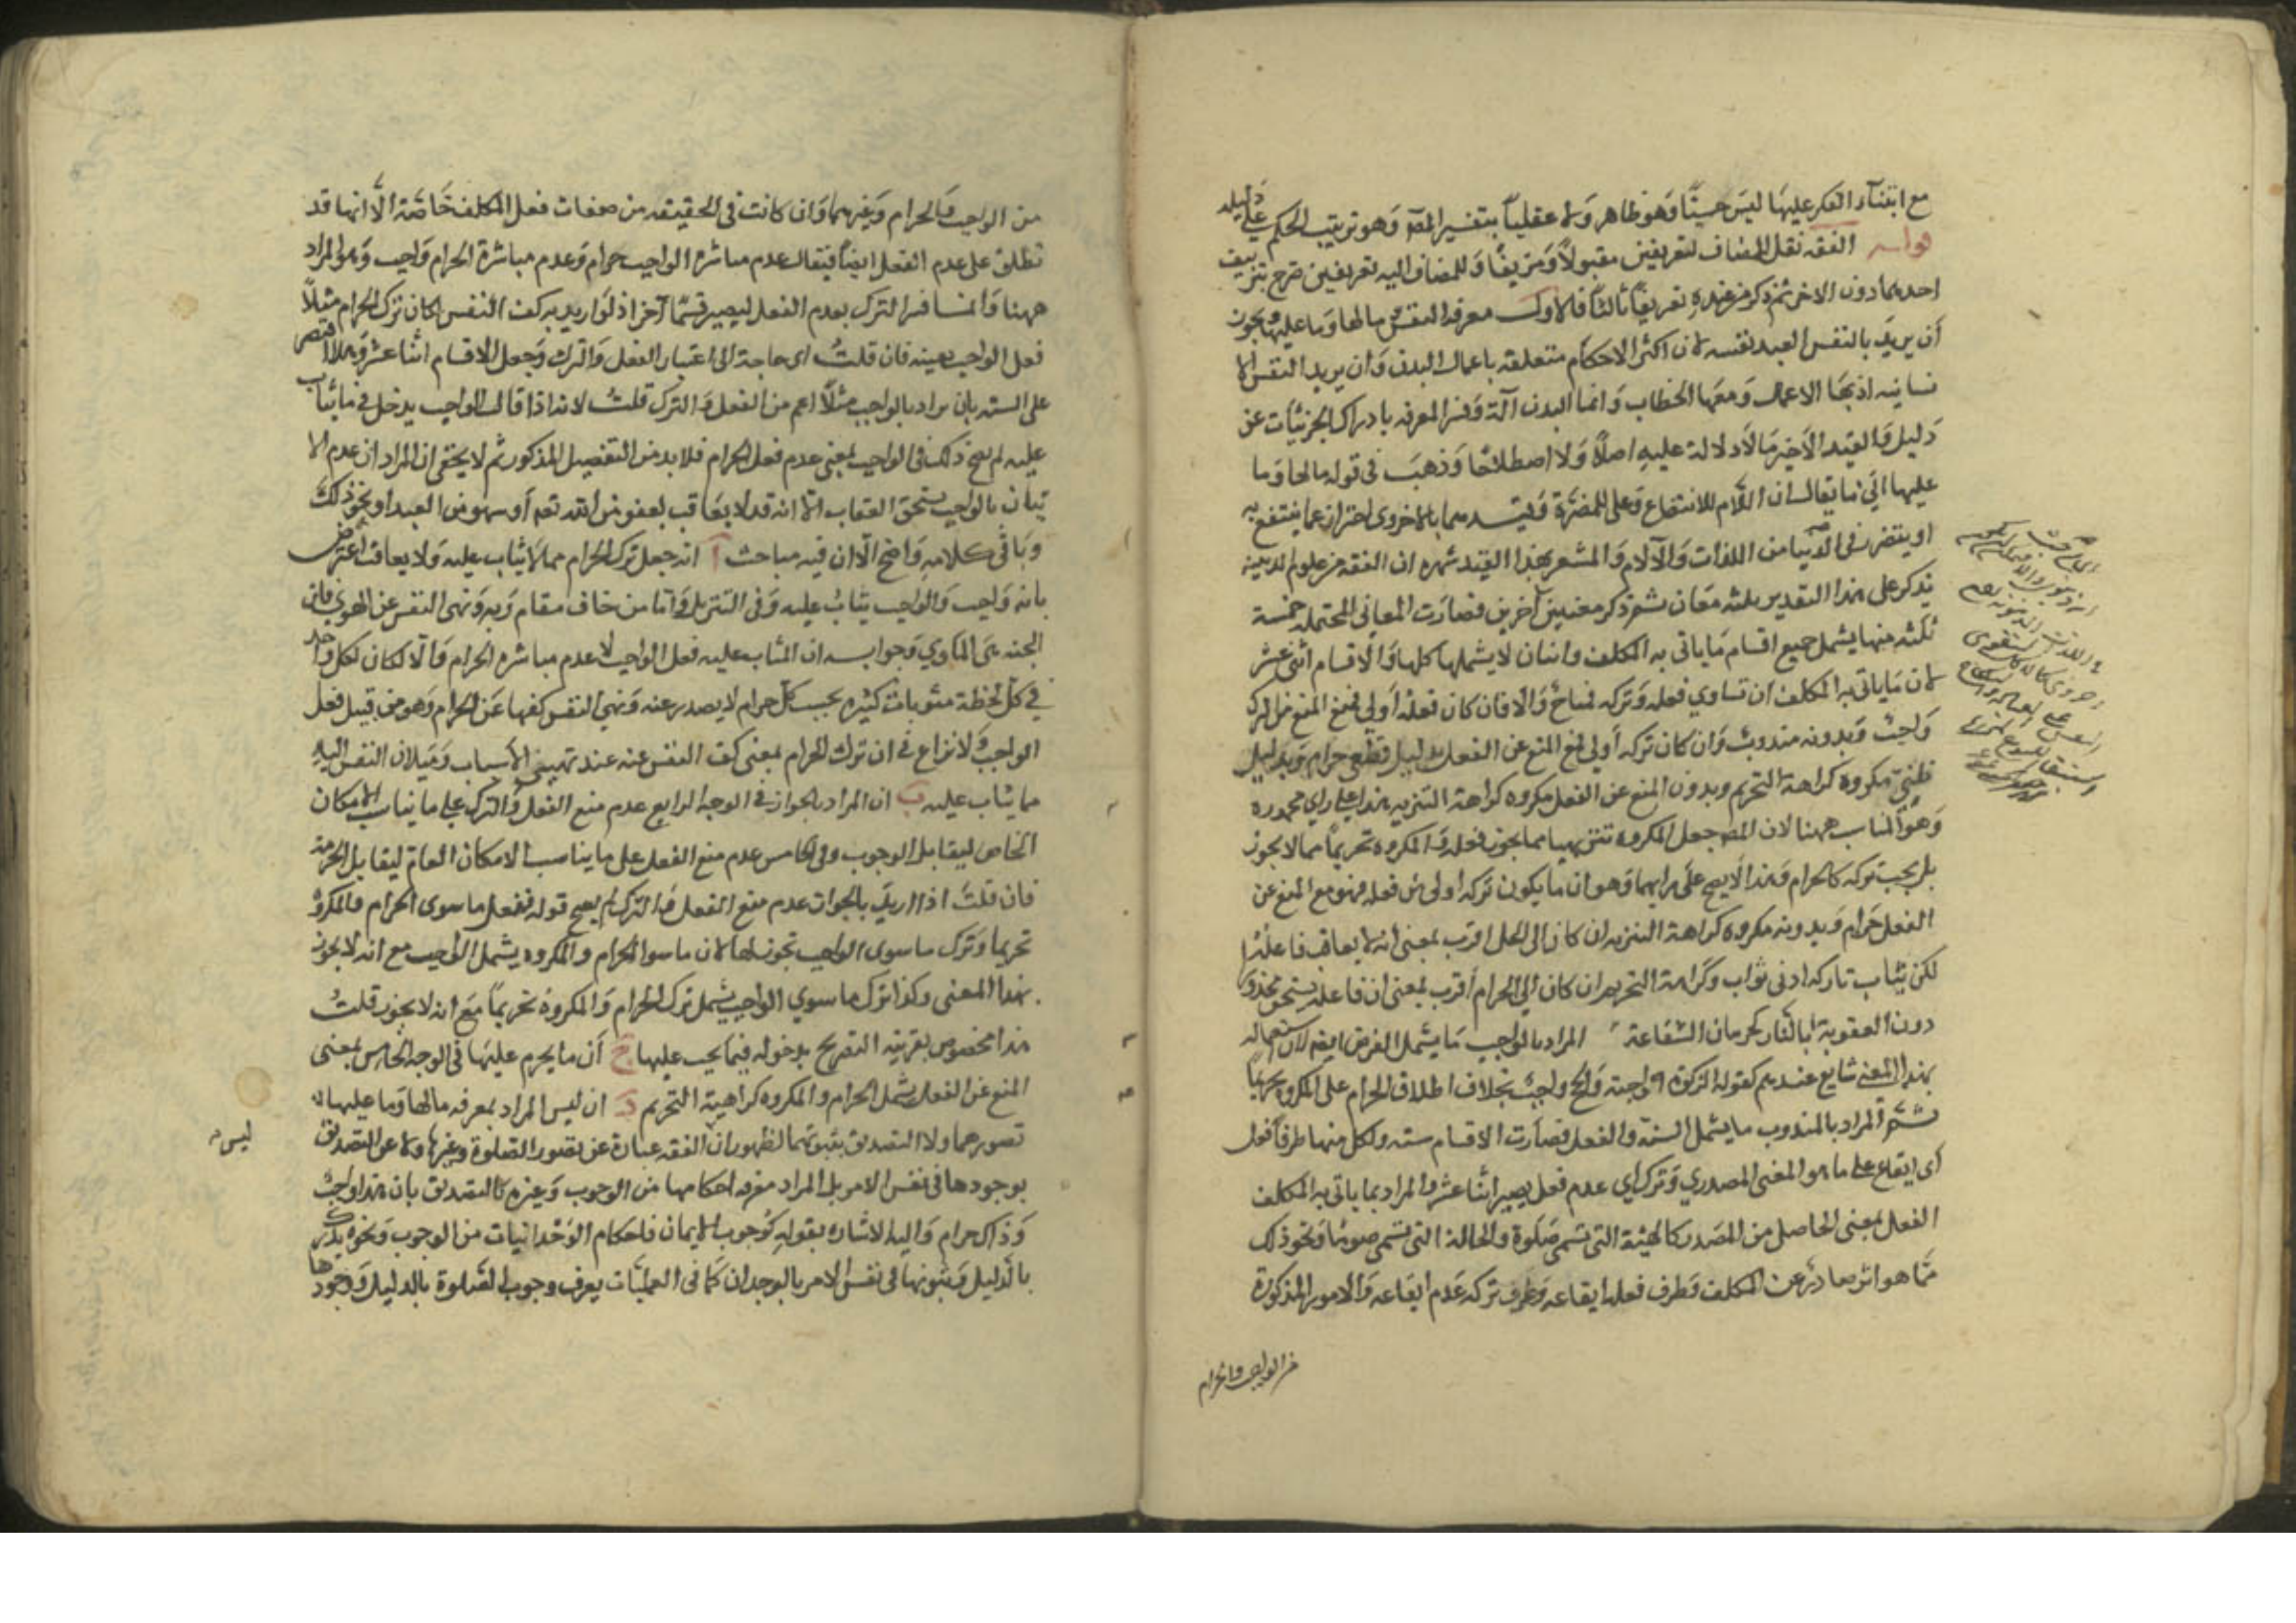 مع ابتناء الفكر عليها ليس حسيّا وهو ظاهر ولا عقلياً بتفسير المص وهو ترتيب الحكم على دليله
قوله الفقه نقل للمضاف تعريفين مقبولاً ومزيفاً وللمضاف اليه تعريفين صرح بتزييف
احدهما دون الاخر ثم ذكر من عنده تعريفاً ثالثاً فالاول معرفة النفس ما لها وما عليها ويجوز
أن يريد بالنفس العبد نفسه لان اكثر الاحكام متعلقة باعمال البدن وان يريد النفس الا
نسانية اذ بها الاعمال ومعها الخطاب وانما البدن آلة وفسر المعرفة بادراك الجزئيات عن
دليل والقيد الاخير مما لا دلالة عليه اصلاً ولا اصطلاحًا وذهب في قوله ما لها وما
عليها الى ما يقال ان اللام للانتفاع وعلى للمضرة وقيدهما بالاخروي احتراز عما ينتفع به
او يتضرر في الدنيا من اللذات والآلام والمشعر بهذا القيد شهرة ان الفقه من علوم الدينية
فذكر على هذا التقدير ثلثة معان ثم ذكر معنيين آخرين فصارت المعاني المحتملة خمسة
ثلثة منها يشمل جميع اقسام ما ياتى به المكلف واثنان لا يشملها كلها والاقسام اثنى عشر
لان ما ياتى به المكلف ان تساوي فعله وتركه فمباح والا فان كان فعله أولى فمع المنع من الترك
واجب وبدونه مندوب وان كان تركه أولى فمع المنع عن الفعل بدليل قطعى حرام وبدليل
ظنيّ مكروه كراهة التحريم وبدون المنع عن الفعل مكروه كراهة التنزيه هذا على راى محمد ره
وهو المناسب ههنا لان المص جعل المكروه تنزيها مما يجوز فعله والمكروه تحريماً مما لا يجوز
بل يجب تركه كالحرام وهذا لا يصح على رايهما وهو ان ما يكون تركه اولى من فعله فهو مع المنع عن
الفعل حرام وبدونه مكروه كراهة التنزيه ان كان الى الحل اقرب بمعنى انه لا يعاقب فاعله
لكن يثاب تاركه ادنى ثواب وكراهة التحريم ان كان الى الحرام أقرب بمعنى ان فاعله يستحق محذورا
دون العقوبة بالنار كحرمان الشفاعة المراد بالواجب ما يشمل الفرض ايضا لان استعماله
بهذا المعنى شايع عندهم كقوله الزكوة واجبة والحج واجب بخلاف اطلاق الحرام على المكروه تحريماً
ثم المراد بالمندوب ما يشمل السنة والنفل فصارت الاقسام ستة ولكل منها طرفا فعل
أى ايقاع على ما هو المعنى المصدري وترك أي عدم فعل يصير اثنا عشر والمراد بما ياتى به المكلف
الفعل بمعنى الحاصل من المصدر كالهيئة التي تسمى صلوة والحالة التي تسمى صوما ونحو ذلك
مما هو اثر صادر عن المكلف وطرف فعله ايقاعه وطرف تركه عدم ايقاعه والامور المذكورة
من الواجب والحرام
من الواجب والحرام وغيرهما وان كانت في الحقيقة من صفات فعل المكلف خاصة الا انها قد
تطلق على عدم الفعل ايضاً فيقال عدم مباشرة الواجب حرام وعدم مباشرة الحرام واجب وهو المراد
ههنا وانما فسر الترك بعدم الفعل ليصير قسماً آخر اذ لو اريد به كف النفس لكان ترك الحرام مثلاً
فعل الواجب بعينه فان قلت اى حاجة الى اعتبار الفعل والترك وجعل الاقسام اثنا عشر وهلا اقتصر
على الستة بان يراد بالواجب مثلاً اعم من الفعل والترك قلت لانه اذا قال الواجب يدخل في ما يثاب
عليه لم يصح ذلك في الواجب بمعنى عدم فعل الحرام فلا بد من التفصيل المذكور ثم لا يخفى ان المراد ان عدم الا
تيان بالواجب يستحق العقاب الا انه قد لا يعاقب لعفو من الله تعه أو سهو من العبد او نحو ذلك
وباقى كلامه واضح الا ان فيه مباحث آ انه جعل ترك الحرام مما لا يثاب عليه ولا يعاقب اعترض
بانه واجب والواجب يثاب عليه وفى التنزيل وأما من خاف مقام ربه ونهى النفس عن الهوى فان
الجنة هى المأوى وجوابه ان المثاب عليه فعل الواجب لا عدم مباشرة الحرام والا لكان لكل واحد
في كل لحظة مثوبات كثيرة بحسب كل حرام لا يصدر عنه ونهى النفس كفها عن الحرام وهو من قبيل فعل
الواجب ولا نزاع في ان ترك الحرام بمعنى كف النفس عنه عند تهيئ الاسباب وميلان النفس اليه
مما يثاب عليه ب ان المراد بالجواز في الوجه الرابع عدم منع الفعل والترك على ما يناسب الامكان
الخاص ليقابل الوجوب وفى الخامس عدم منع الفعل على ما يناسب الامكان العام ليقابل الحرمة
فان قلت اذا اريد بالجواز عدم منع الفعل والترك لم يصح قوله ففعل ما سوى الحرام والمكروه
تحريما وترك ما سوى الواجب يجوز لها لان ما سوى الحرام والمكروه يشمل الواجب مع انه لا يجوز
بهذا المعنى وكذا ترك ما سوي الواجب يشمل ترك الحرام والمكروه تحريماً مع انه لا يجوز قلت
هذا مخصوص بقرينة التصريح بدخوله فيما يجب عليها ج أن ما يحرم عليها في الوجه الخامس بمعنى
المنع عن الفعل يشمل الحرام والمكروه كراهية التحريم د ان ليس المراد بمعرفة ما لها وما عليها
تصورهما ولا التصديق بثبوتهما لظهور ان الفقه عبارة عن تصور الصلوة وغيرها ولا عن التصديق
ليس
بوجودها في نفس الامر بل المراد معرفة احكامها من الوجوب وغيره كالتصديق بان هذا واجب
وذاك حرام واليه الاشارة بقوله كوجوب الايمان فاحكام الوجدانيات من الوجوب ونحوه يدرك
بالدليل وثبوتها في نفس الامر بالوجدان كما في العمليات يعرف وجوب الصلوة بالدليل ووجودها